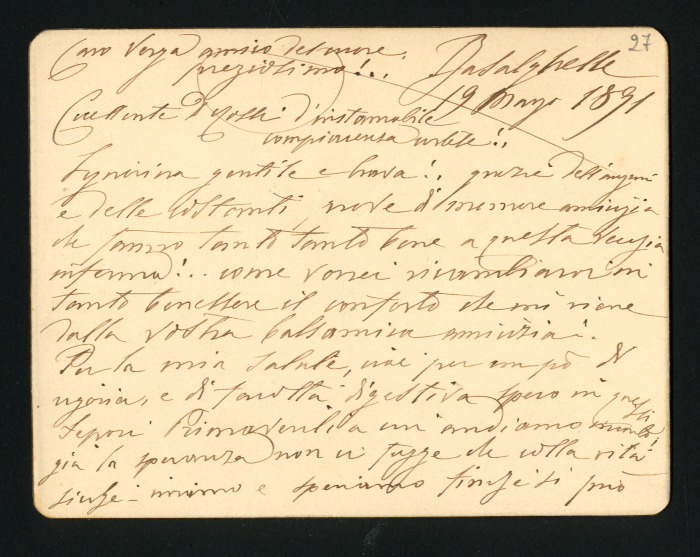 27
Caro Verga amico del cuore
preziosissimo!.. Basalghelle
19 Maggio 1891
Eccellente D. Rossi d'instancabile
compiacenza cortese!..
Signorina gentile e brava!.. grazie degli auguri
e delle costanti prove di memore amicizia
che fanno tanto tanto bene a questa vecchia
inferma!.. come vorrei ricambiarvi in
tanto benessere il conforto che mi viene
dalla vostra balsamica amicizia!.
Per la mia salute, cioè per un pò di
vigoria, e di facoltà digestiva spero in questi
tepori Primaverili a cui andiamo incontro!
già la speranza non ci fugge che colla vita!
viviamo e speriamo finché si può